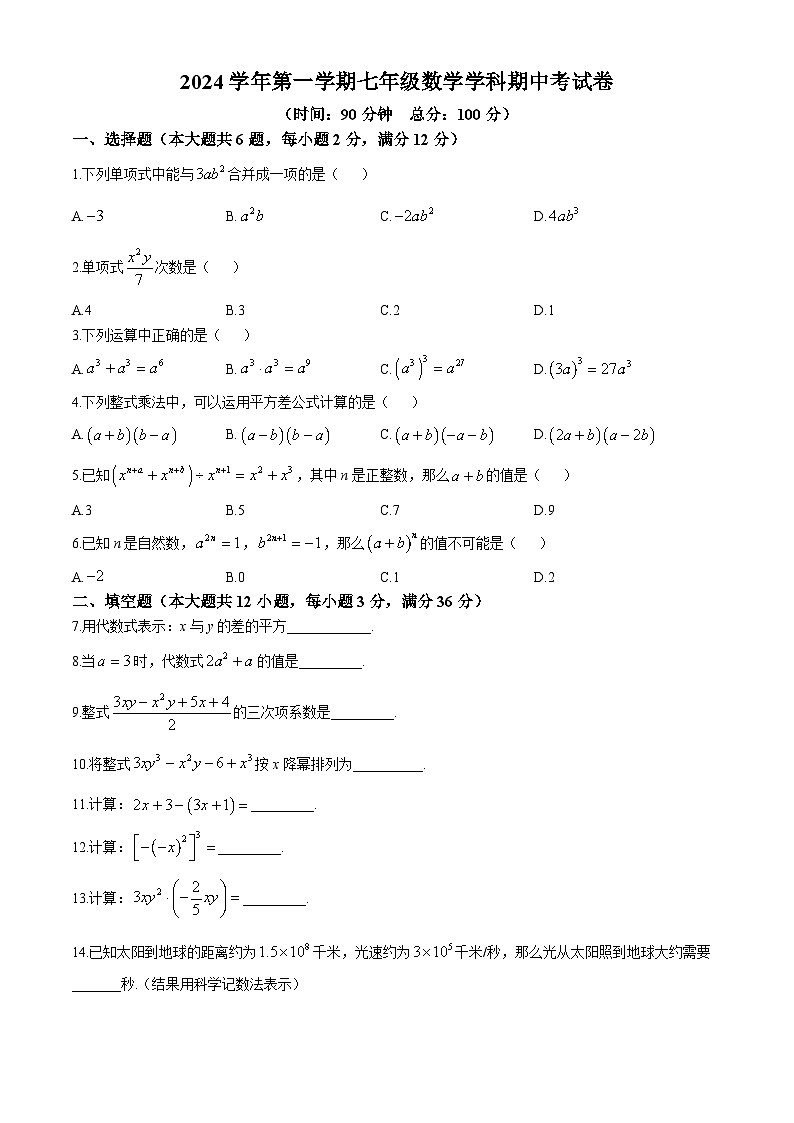 2024学年第一学期七年级数学学科期中考试卷
（时间：90分钟 总分：100分）
一、选择题（本大题共6题，每小题2分，满分12分）
1.下列单项式中能与3ab²合并成一项的是（ ）
A.−3 B. a²b C. −2ab² D. 4ab³
2.单项式 x²y/7 次数是（ ）
A.4 B.3 C.2 D.1
3.下列运算中正确的是（ ）
A. a³+a³=a⁶ B. a³·a³=a⁹ C. (a³)³=a²⁷ D. (3a)³=27a³
4.下列整式乘法中，可以运用平方差公式计算的是（ ）
A. (a+b)(b−a) B. (a−b)(b−a) C. (a+b)(−a−b) D. (2a+b)(a−2b)
5.已知(xⁿ⁺ᵃ+xⁿ⁺ᵇ)÷xⁿ⁺¹=x²+x³，其中n是正整数，那么a+b的值是（ ）
A.3 B.5 C.7 D.9
6.已知n是自然数，a²ⁿ=1，b²ⁿ⁺¹=−1，那么(a+b)ⁿ的值不可能是（ ）
A.−2 B.0 C.1 D.2
二、填空题（本大题共12小题，每小题3分，满分36分）
7.用代数式表示：x与y的差的平方____________.
8.当a=3时，代数式2a²+a的值是_________.
9.整式 (3xy−x²y+5x+4)/2 的三次项系数是_________.
10.将整式3xy³−x²y−6+x³按x降幂排列为__________.
11.计算：2x+3−(3x+1)=_________.
12.计算：[−(−x)²]³=_________.
13.计算：3xy²·(−2/5xy)=_________.
14.已知太阳到地球的距离约为1.5×10⁸千米，光速约为3×10⁵千米/秒，那么光从太阳照到地球大约需要
_______秒.（结果用科学记数法表示）